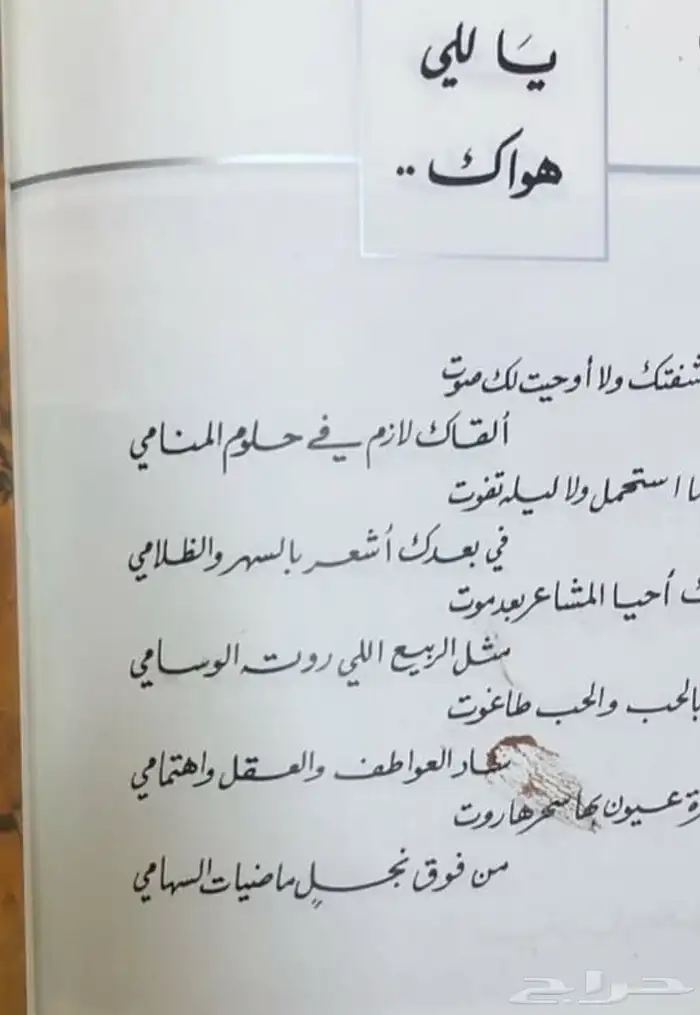 يَا للي
هواك ..
شفتك ولا أوحيت لك صوت
ألقاك لازم في حلوم المنامي
ما استحمل ولا ليله تفوت
في بعدك أشعر بالسهر والظلامي
أحيا المشاعر بعد موت
مثل الربيع اللي روته الوسامي
بالحب والحب طاغوت
العواطف والعقل واهتمامي
عيون بها سحر هاروت
من فوق نجلٍ ماضيات السهامي
حراج